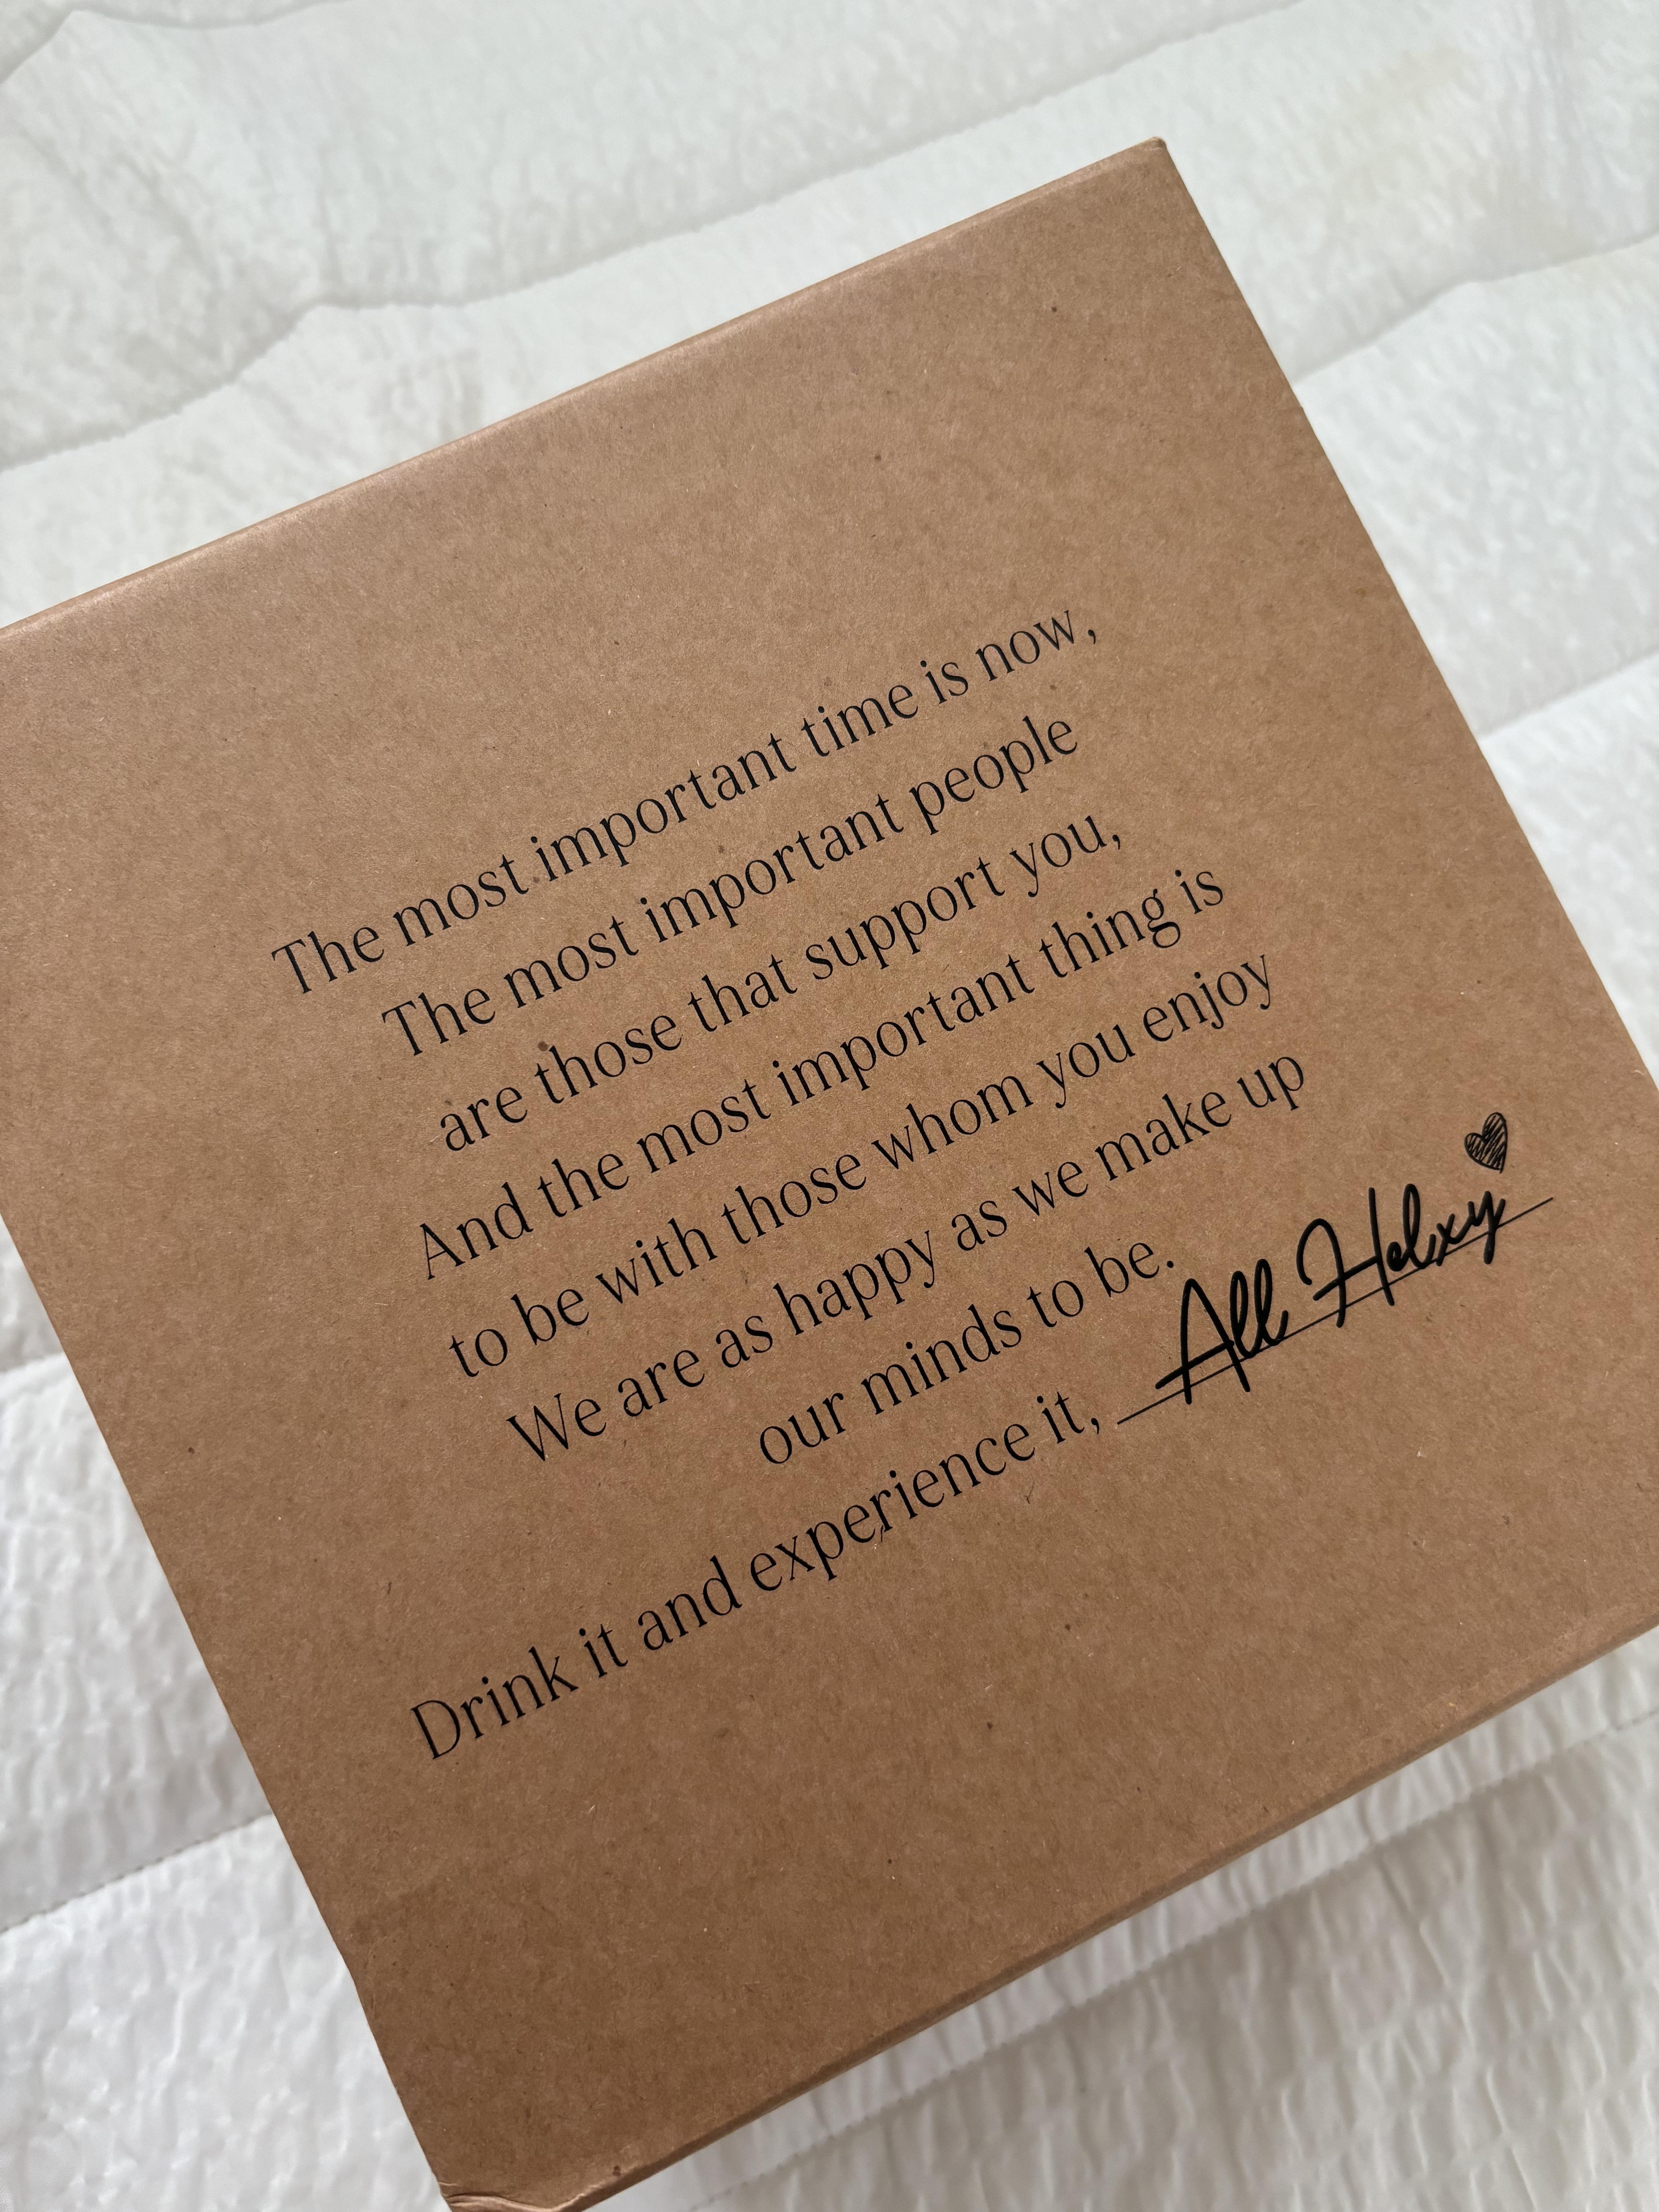 The most important time is now,
The most important people
are those that support you,
And the most important thing is
to be with those whom you enjoy
We are as happy as we make up
our minds to be.
Drink it and experience it, All Helxy